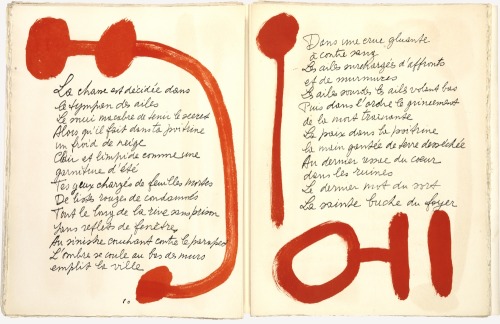 La chance est décidée dans
le tympan des ailes
Le ennui macabre de tenir le secret
Alors qu'il fait dans ta poitrine
un froid de neige
Clair et limpide comme une
garniture d'été
Tes yeux chargés de feuilles mortes
De listes rouges de condamnés
Tout le long de la rive sans prison
sans reflets de fenêtre
Au sinistre couchant contre le parapet
L'ombre se coule au bas des murs
emplit la ville
Dans une crue gluante
à contre sang
Les ailes surchargées d'affronts
et de murmures
Les ailes sourdes les ails volent bas
Puis dans l'ordre le grincement
de la mort
La paix dans la poitrine
la main gantée de terre
Au dernier du cœur
dans les ruines
Le dernier mot du sort
La sainte buche du foyer